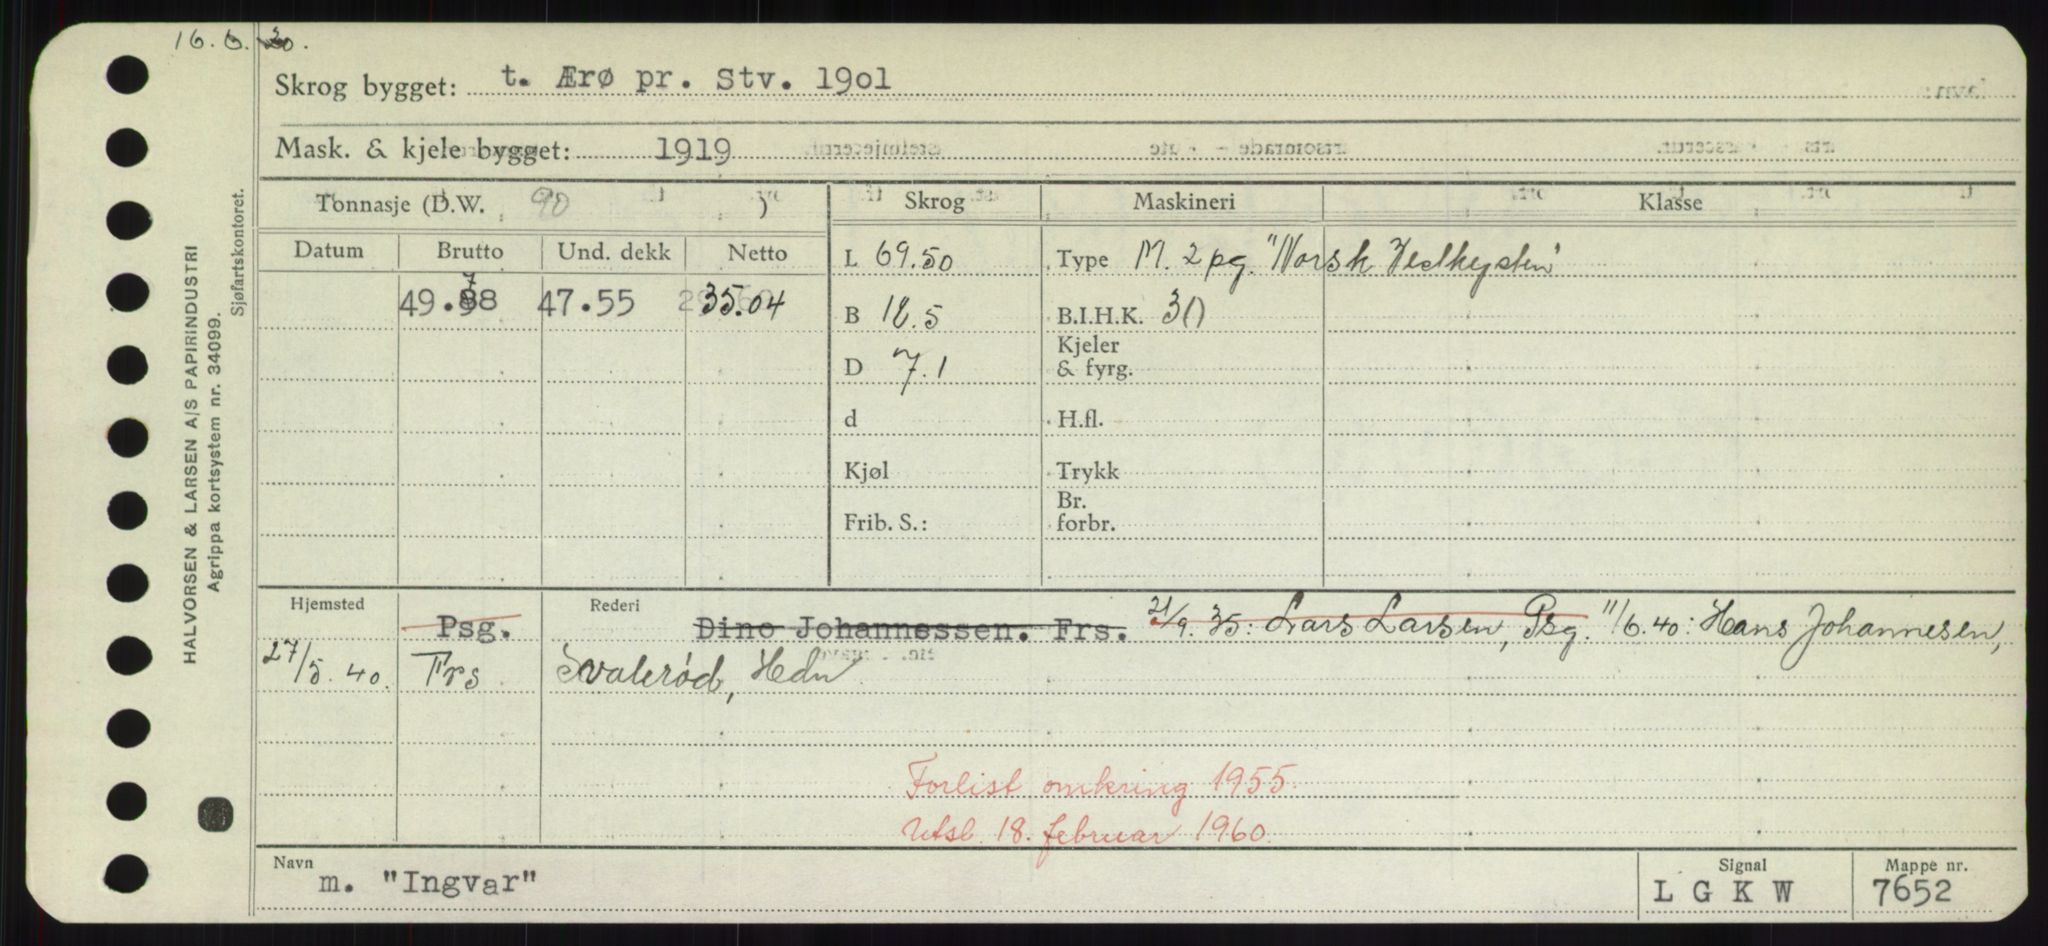 16. 6. 30.
Skrog bygget: t. Ærø pr. Stv. 19o1
Mask. & kjele bygget: 1919
Tonnasje (D.W. 90 )
Skrog
Maskineri
Klasse
Datum
Brutto
Und. dekk
Netto
49.78
47.55
35.04
L 69.50
B 18.5
D 7.1
d
Kjøl
Frib. S.:
Type M. 2 pg. "Norsk Vestkysten"
B.I.H.K. 30
Kjeler
& fyrg.
H.fl.
Trykk
Br.
forbr.
Hjemsted
Rederi
Psg. Dino Johannessen. Frs. 21/9. 35: Lars Larsen, Psg. 11/6.40: Hans Johannesen,
27/5. 40. Frs Svalerød, Hdn
Forlist omkring 1955.
Utsl. 18. februar 1960.
Navn
m. "Ingvar"
Signal
L G K W
Mappe nr.
7652
HALVORSEN & LARSEN A/S PAPIRINDUSTRI
Agrippa kortsystem nr. 34099.
Sjøfartskontoret.